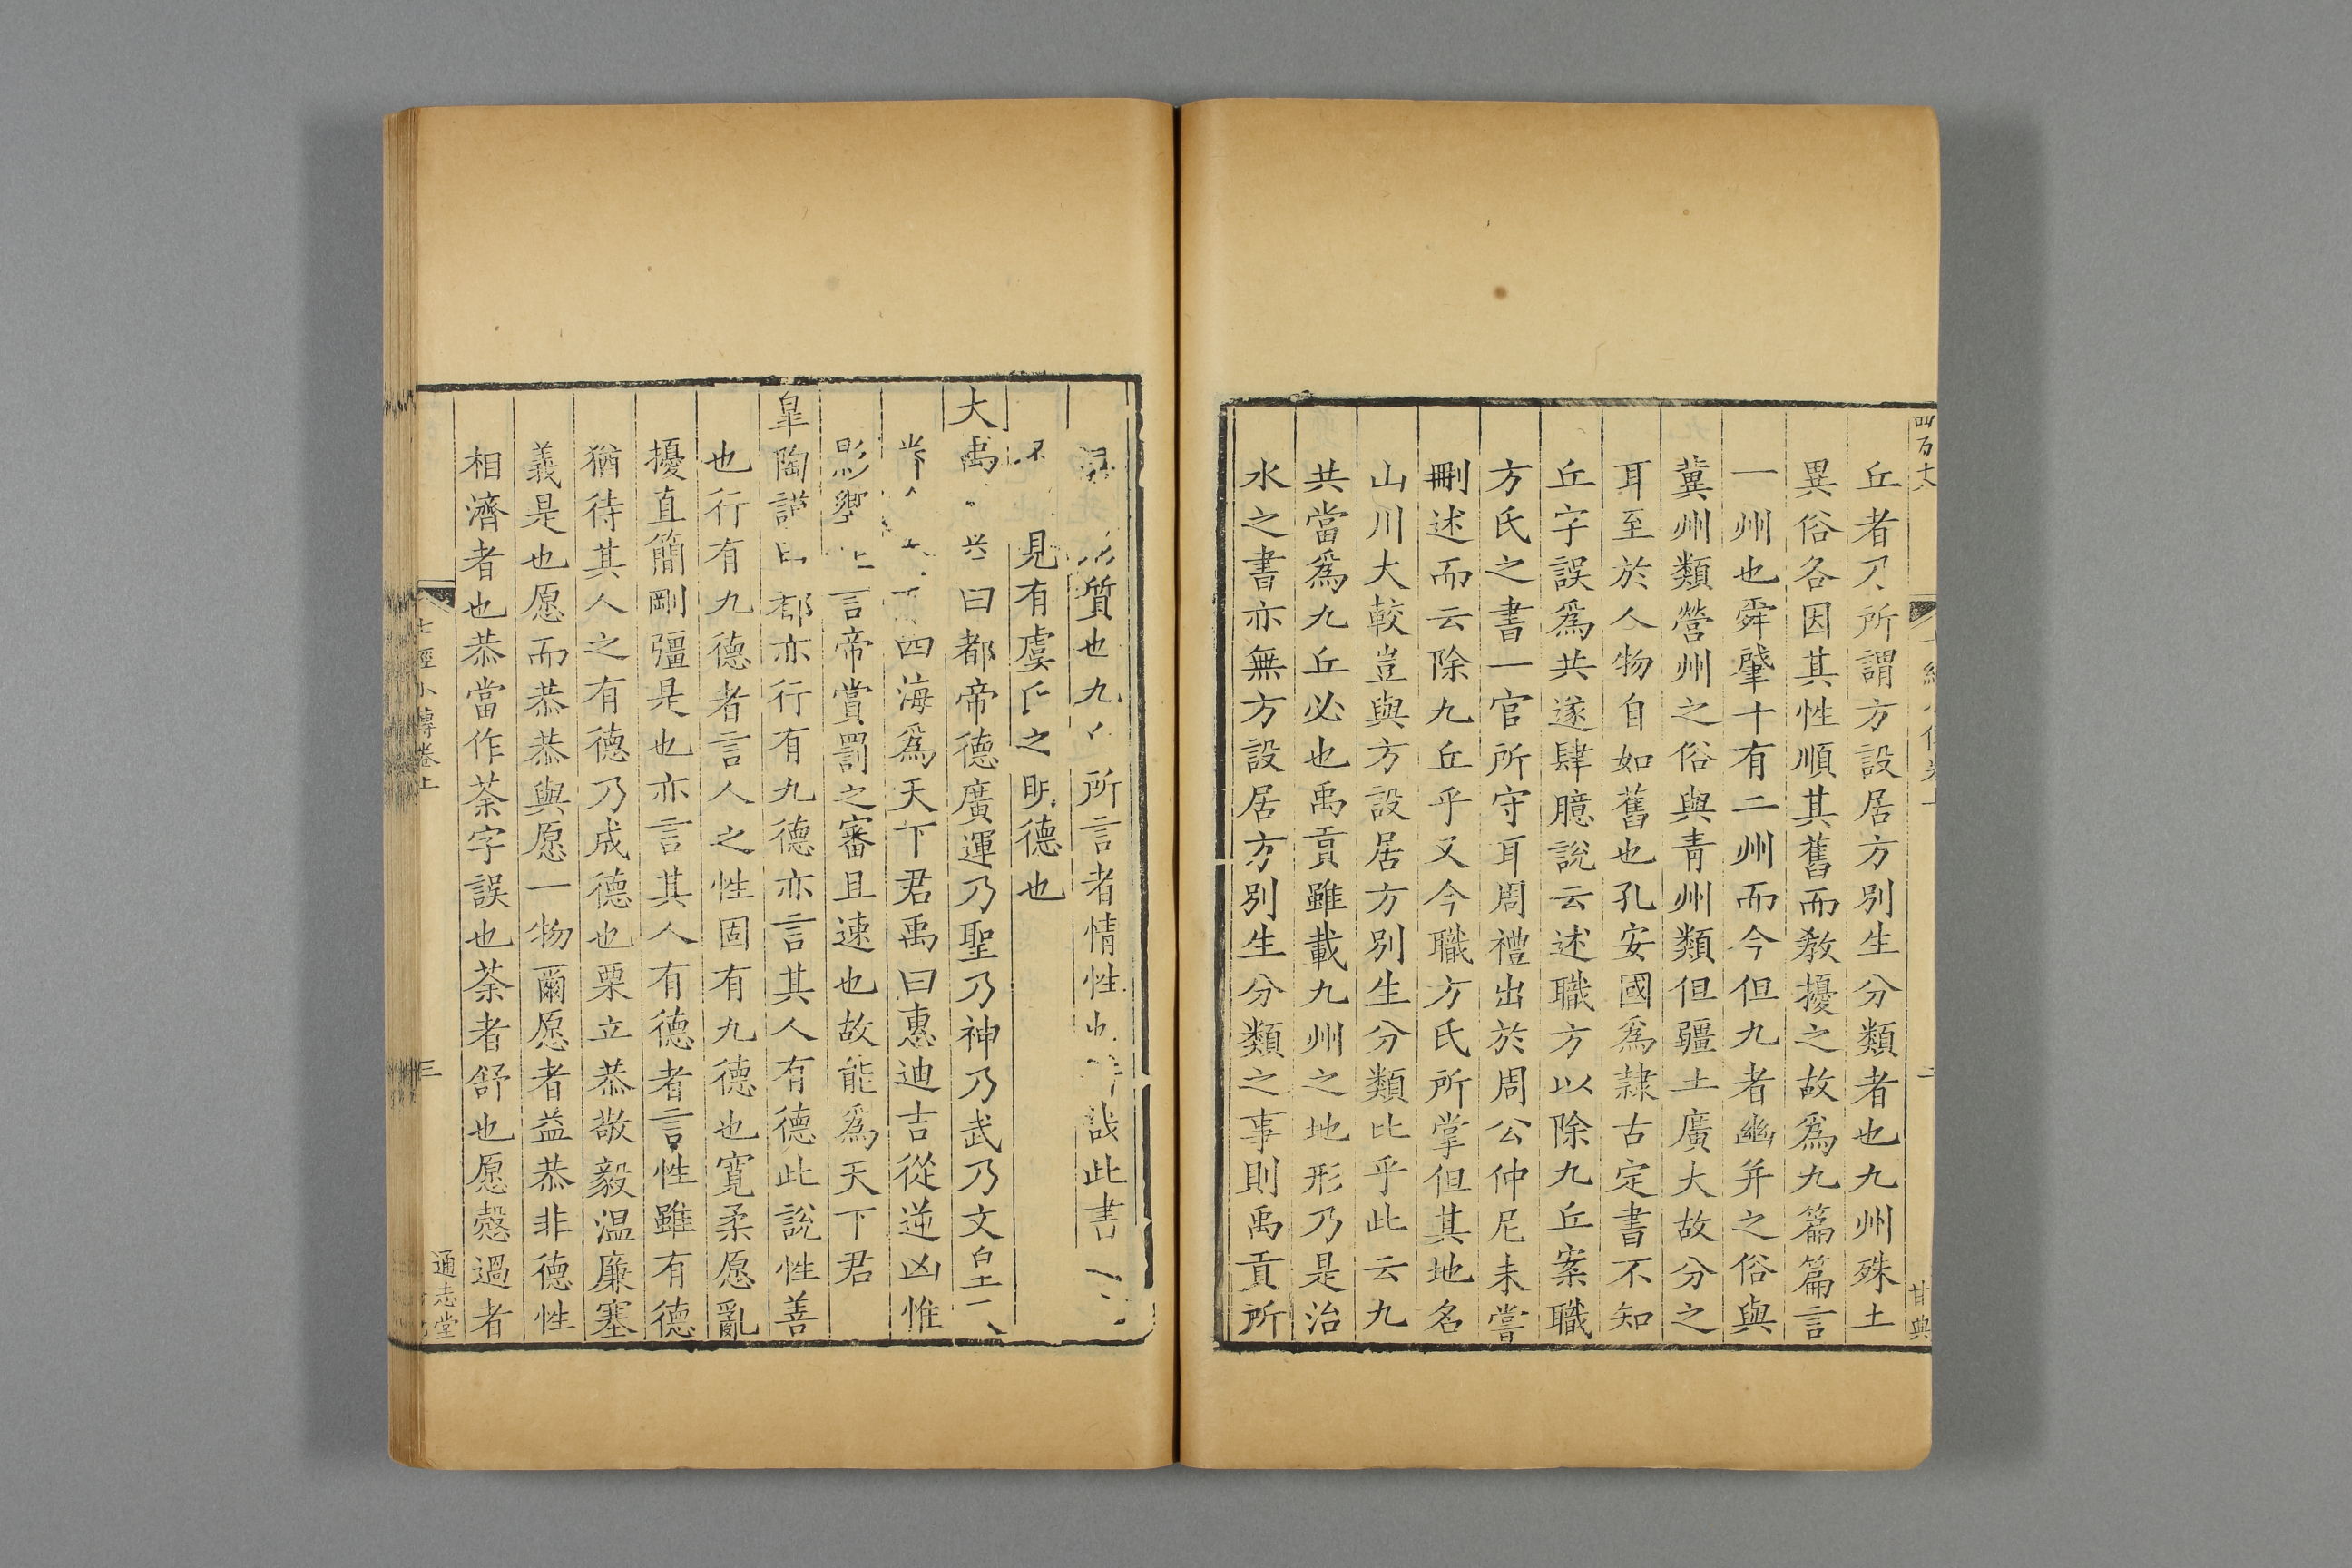 四百十六
二
甘典
丘者乃所謂方設居方別生分類者也九州殊土
異俗各因其性順其舊而教擾之故爲九篇篇言
一州也舜肇十有二州而今但九者幽并之俗與
冀州類營州之俗與青州類但疆土廣大故分之
耳至於人物自如舊也孔安國爲隷古定書不知
丘字誤爲共遂肆臆說云述職方以除九丘案職
方氏之書一官所守耳周禮出於周公仲尼未嘗
刪述而云除九丘乎又今職方氏所掌但其地名
山川大較豈與方設居方別生分類比乎此云九
共當爲九丘必也禹貢雖載九州之地形乃是治
水之書亦無方設居方別生分類之事則禹貢所
質也九所言者情性哉此書
見有虞氏之明德也
大禹曰都帝德廣運乃聖乃神乃武乃文皇
四海爲天下君禹曰惠迪吉從逆凶惟
影響言帝賞罰之審且速也故能爲天下君
皐陶謨曰都亦行有九德亦言其人有德此說性善
也行有九德者言人之性固有九德也寬柔愿亂
擾直簡剛彊是也亦言其人有德者言性雖有德
猶待其人之有德乃成德也栗立恭敬毅温廉塞
義是也愿而恭恭與愿一物爾愿者益恭非德性
相濟者也恭當作荼字誤也荼者舒也愿愨過者
七經小傳卷上
三
通志堂